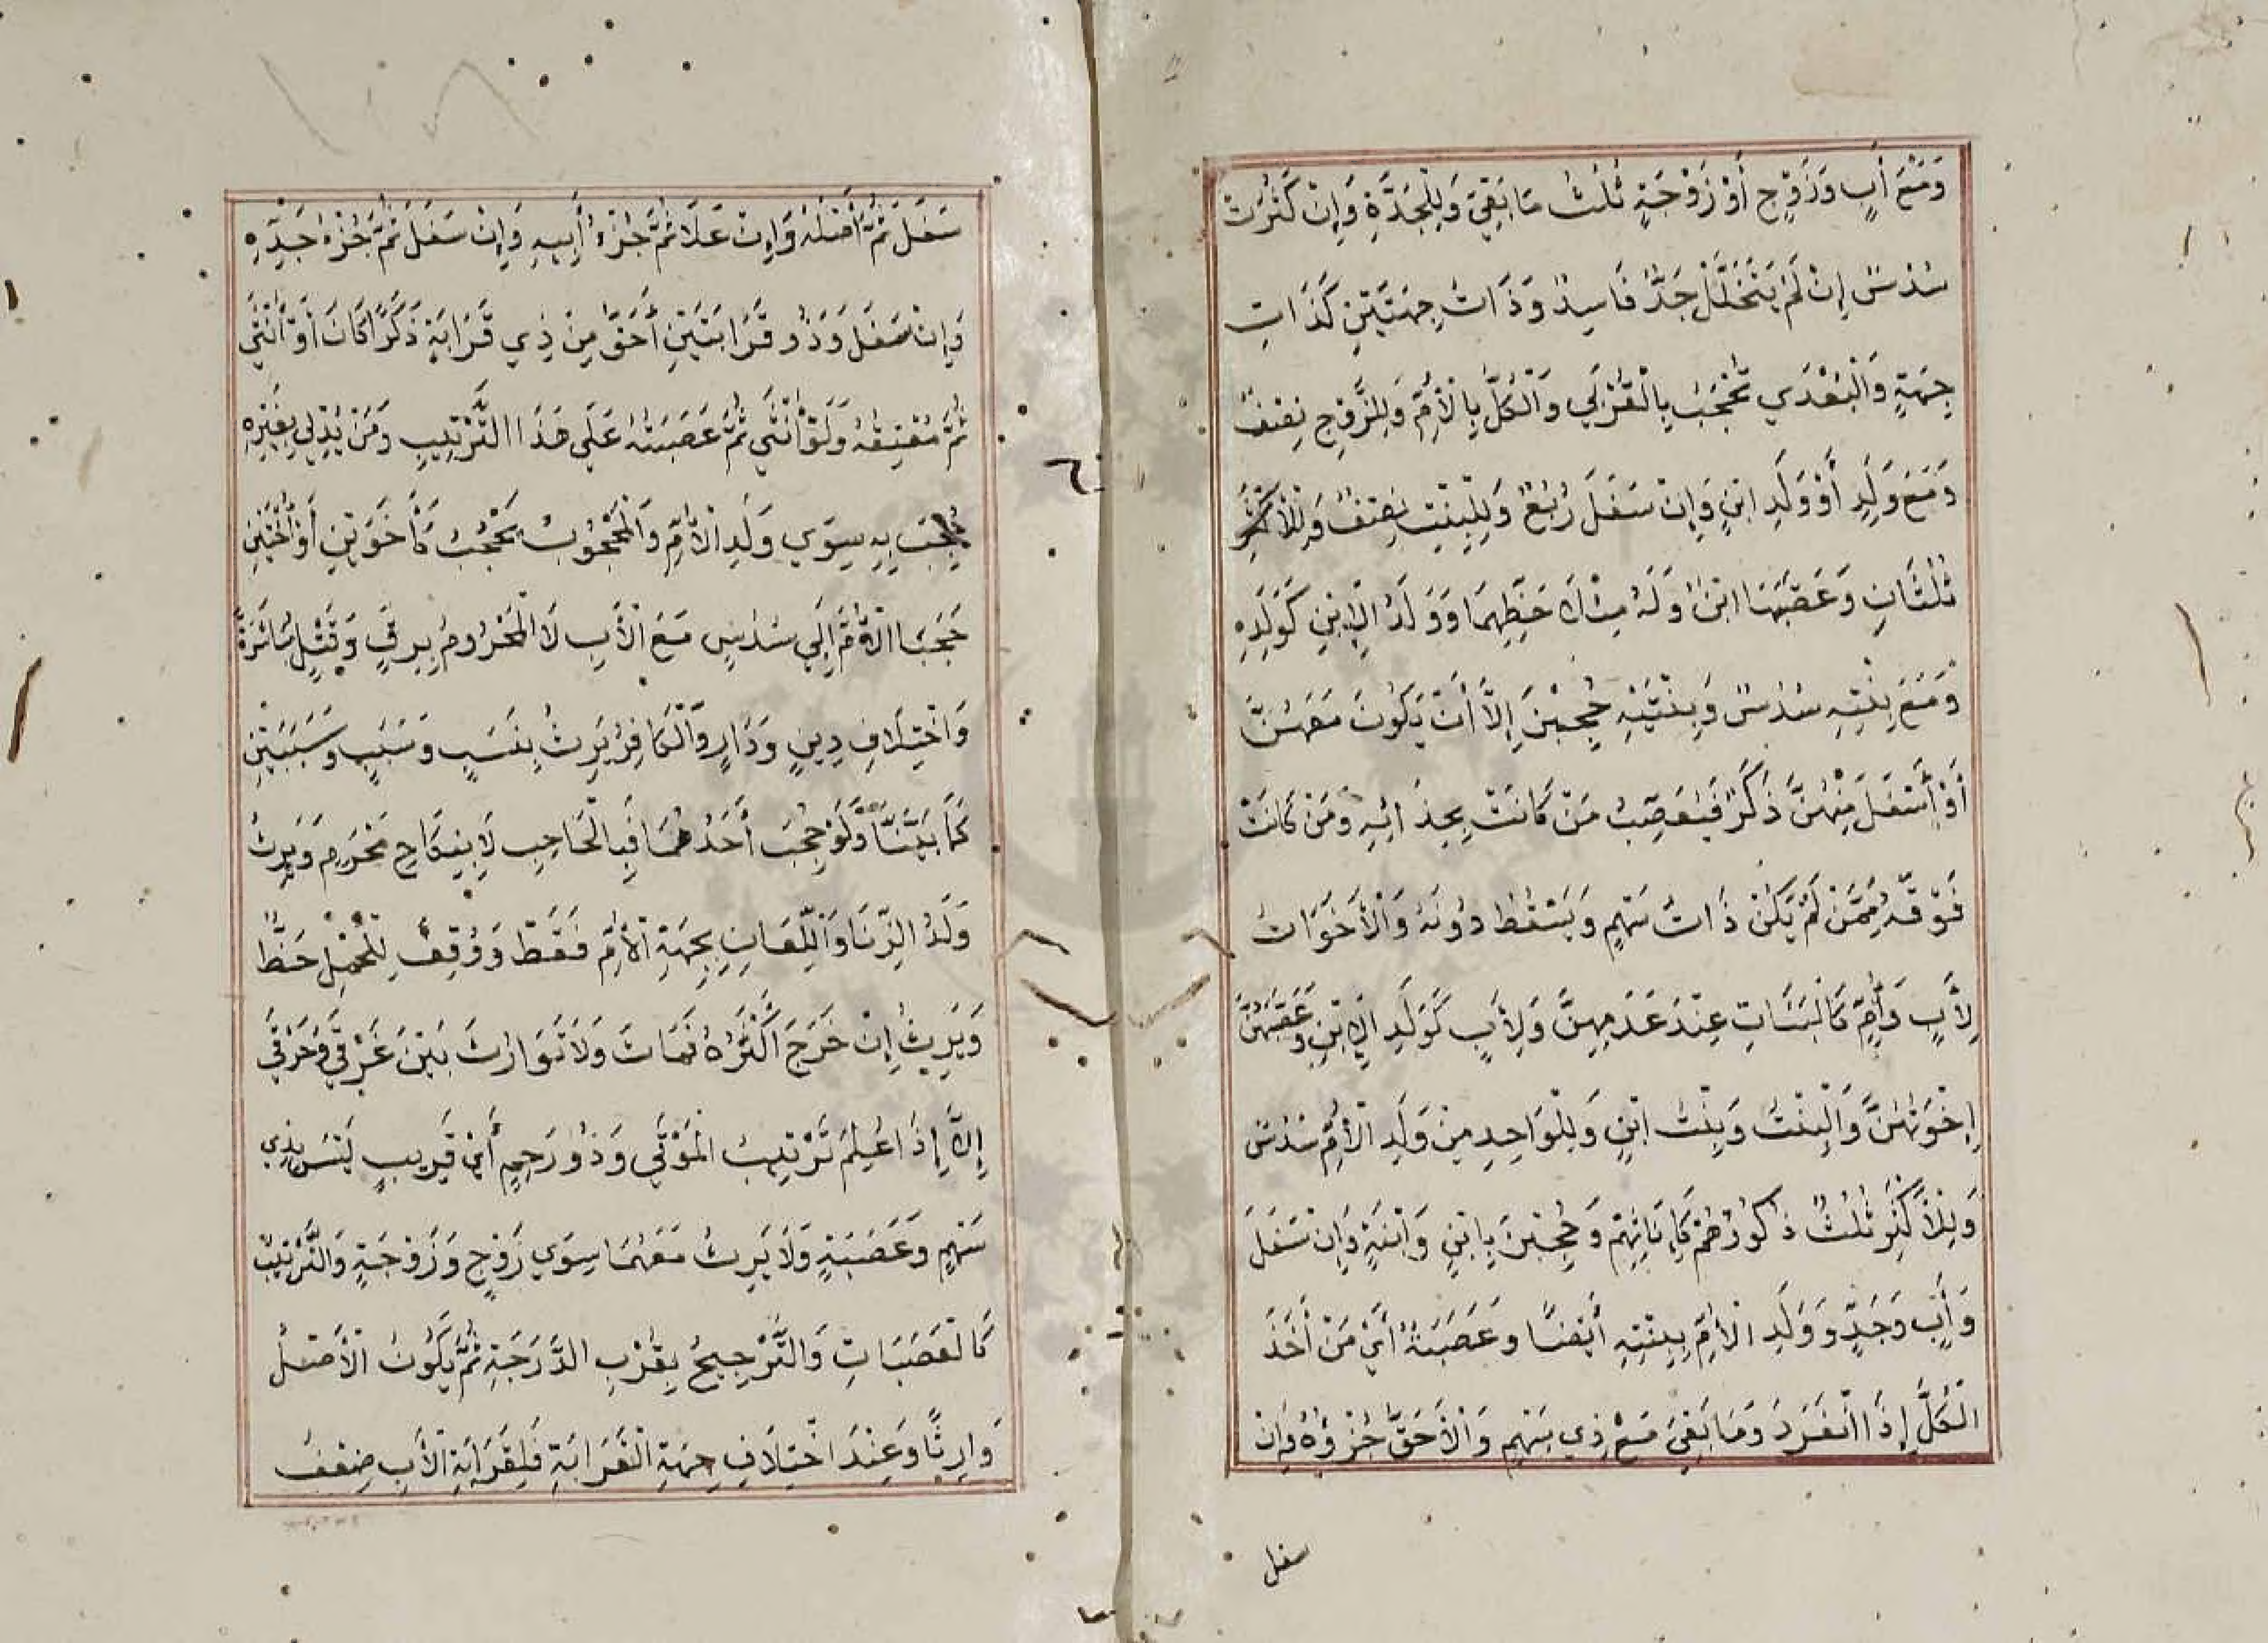 وَمَعَ أَبٍ وَزَوْجٍ أَوْ زَوْجَةٍ ثُلُثُ مَا بَقِيَ وَلِلْجَدَّةِ وَإِنْ كَثُرَتْ
سُدُسٌ إِنْ لَمْ يَتَخَلَّلْ جَدٌّ فَاسِدٌ وَذَاتُ جِهَتَيْنِ كَذَاتِ
جِهَةٍ وَالْبُعْدَي تُحْجَبُ بِالْقُرْبَي وَالْكُلُّ بِالْأُمِّ وَلِلزَّوْجِ نِصْفٌ
وَمَعَ وَلَدٍ أَوْ وَلَدِ ابْنٍ وَإِنْ سَفَلَ رُبُعٌ وَلِلْبِنْتِ نِصْفٌ وَلِلْأَكْثَرِ
ثُلُثَانِ وَعَصَّبَهَا ابْنٌ وَلَهُ مِثْلَا حَظِّهِمَا وَوَلَدُ الْاِبْنِ كَوَلَدِهِ
وَمَعَ بِنْتِهِ سُدُسٌ وَبِنْتَيْهِ حُجِبْنَ إِلَّا أَنْ يَكُونَ مَعَهُنَّ
أَوْ أَسْفَلَ مِنْهُنَّ ذَكَرٌ فَيُعَصِّبُ مَنْ كَانَتْ بِحِذَائِهِ وَمَنْ كَانَتْ
فَوْقَهُ مِمَّنْ لَمْ يَكُنْ ذَاتُ سَهْمٍ وَيَسْقُطُ دُونَهُ وَالْأَخَوَاتُ
لِأَبٍ وَأُمٍّ كَالْبَنَاتِ عِنْدَ عَدَمِهِنَّ وَلِأَبٍ كَوَلَدِ الْاِبْنِ وَعَصَّبَهُنَّ
إِخْوَتُهُنَّ وَالْبِنْتُ وَبِنْتُ ابْنٍ وَلِلْوَاحِدِ مِنْ وَلَدِ الْأُمِّ سُدُسٌ
وَلِلْأَكْثَرِ ثُلُثٌ ذُكُورُهُمْ كَإِنَاثِهِمْ وَحُجِبْنَ بِابْنٍ وَابْنِهِ وَإِنْ سَفَلَ
وَأَبٍ وَجَدٍّ وَوَلَدِ الْأُمِّ بِبِنْتِهِ أَيْضًا وَعَصَبَةٌ أَيْ مَنْ أَخَذَ
الْكُلَّ إِذَا انْفَرَدَ وَمَا بَقِيَ مَعَ ذِي سَهْمٍ وَالْأَحَقُّ جُزْؤُهُ وَإِنْ
سفل
١٠٨
سَفَلَ ثُمَّ أَصْلُهُ وَإِنْ عَلَا ثُمَّ جُزْءُ أَبِيهِ وَإِنْ سَفَلَ ثُمَّ جُزْءُ جَدِّهِ
وَإِنْ سَفَلَ وَذُو قَرَابَتَيْنِ أَحَقُّ مِنْ ذِي قَرَابَةٍ ذَكَرًا كَانَ أَوْ أُنْثَى
ثُمَّ مُعْتِقُهُ وَلَوْ أُنْثَي ثُمَّ عَصَبَتُهُ عَلَي هَذَا التَّرْتِيبِ وَمَنْ يُدْلِي بِغَيْرِهِ
حُجِبَ بِهِ سِوَي وَلَدِ الْأُمِّ وَالْمَحْجُوبُ يَحْجُبُ كَأَخَوَيْنِ أَوْ أُخْتَيْنِ
حَجَبَا الْأُمَّ إِلَي سُدُسٍ مَعَ الْأَبِ لَا الْمَحْرُومُ بِرِقٍّ وَقَتْلٍ مُبَاشَرَةً
وَاخْتِلَافِ دِينٍ وَدَارٍ وَالْكَافِرُ يَرِثُ بِنَسَبٍ وَسَبَبٍ وَسَبَبَيْنِ
كَمَا بَيَّنَّا وَلَوْ حُجِبَ أَحَدُهُمَا فَبِالْحَاجِبِ لَا بِنِكَاحِ مَحْرَمٍ وَيَرِثُ
وَلَدُ الزِّنَا وَاللِّعَانِ بِجِهَةِ الْأُمِّ فَقَطْ وَوُقِفَ لِلْحَمْلِ حَظٌّ
وَيَرِثُ إِنْ خَرَجَ أَكْثَرُهُ فَمَاتَ وَلَا تَوَارُثَ بَيْنَ غَرْقَي وَحَرْقَي
إِلَّا إِذَا عُلِمَ تَرْتِيبُ الْمَوْتَي وَذُو رَحِمٍ أَيْ قَرِيبٍ لَيْسَ بِذِي
سَهْمٍ وَعَصَبَةٍ وَلَا يَرِثُ مَعَهُمَا سِوَي زَوْجٍ وَزَوْجَةٍ وَالتَّرْتِيبُ
كَالْعَصَبَاتِ وَالتَّرْجِيحُ بِقُرْبِ الدَّرَجَةِ ثُمَّ يَكُونُ الْأَصْلُ
وَارِثًا وَعِنْدَ اخْتِلَافِ جِهَةِ الْقَرَابَةِ فَلِقَرَابَةِ الْأَبِ ضِعْفُ